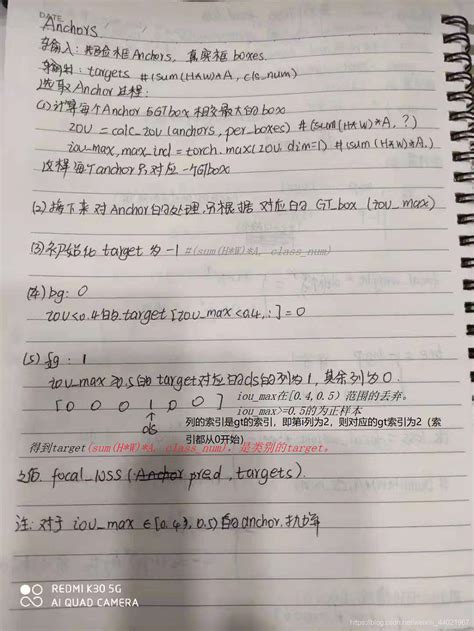 DATE
Anchors.
输入: 先验框Anchors, 真实框 boxes.
输出: targets #(sum(H*W)*A, cls_num)
选取Anchor过程:
(1)计算每个Anchor与GTbox相交最大的box
IOU = calc_iou(anchors, per_boxes) #(sum(H*W)*A, ?)
iou_max, max_ind = torch.max(IOU, dim=1) #(sum(H*W)*A,)
这样每个anchor只对应一个GTbox
(2)接下来对Anchor的处理,只根据对应的GT_box (iou_max)
(3)初始化target为-1 #(sum(H*W)*A, class_num)
(4)bg: 0
IOU<0.4的target[iou_max<0.4,:]=0
(5)fg: 1
iou_max≥0.5的target对应的cls的列为1,其余列为0.
[0 0 0 1 0 0]
iou_max在[0.4,0.5)范围的丢弃。
iou_max>=0.5的为正样本
cls
列的索引是gt的索引,即第i列为2,则对应的gt索引为2(索
引都从0开始)
得到target(sum(H*W)*A, class_num),是类别的target。
之后. focal_loss(pred, targets)
注: 对于 iou_max ∈[0.4,0.5)的anchor.
REDMI K30 5G
AI QUAD CAMERA